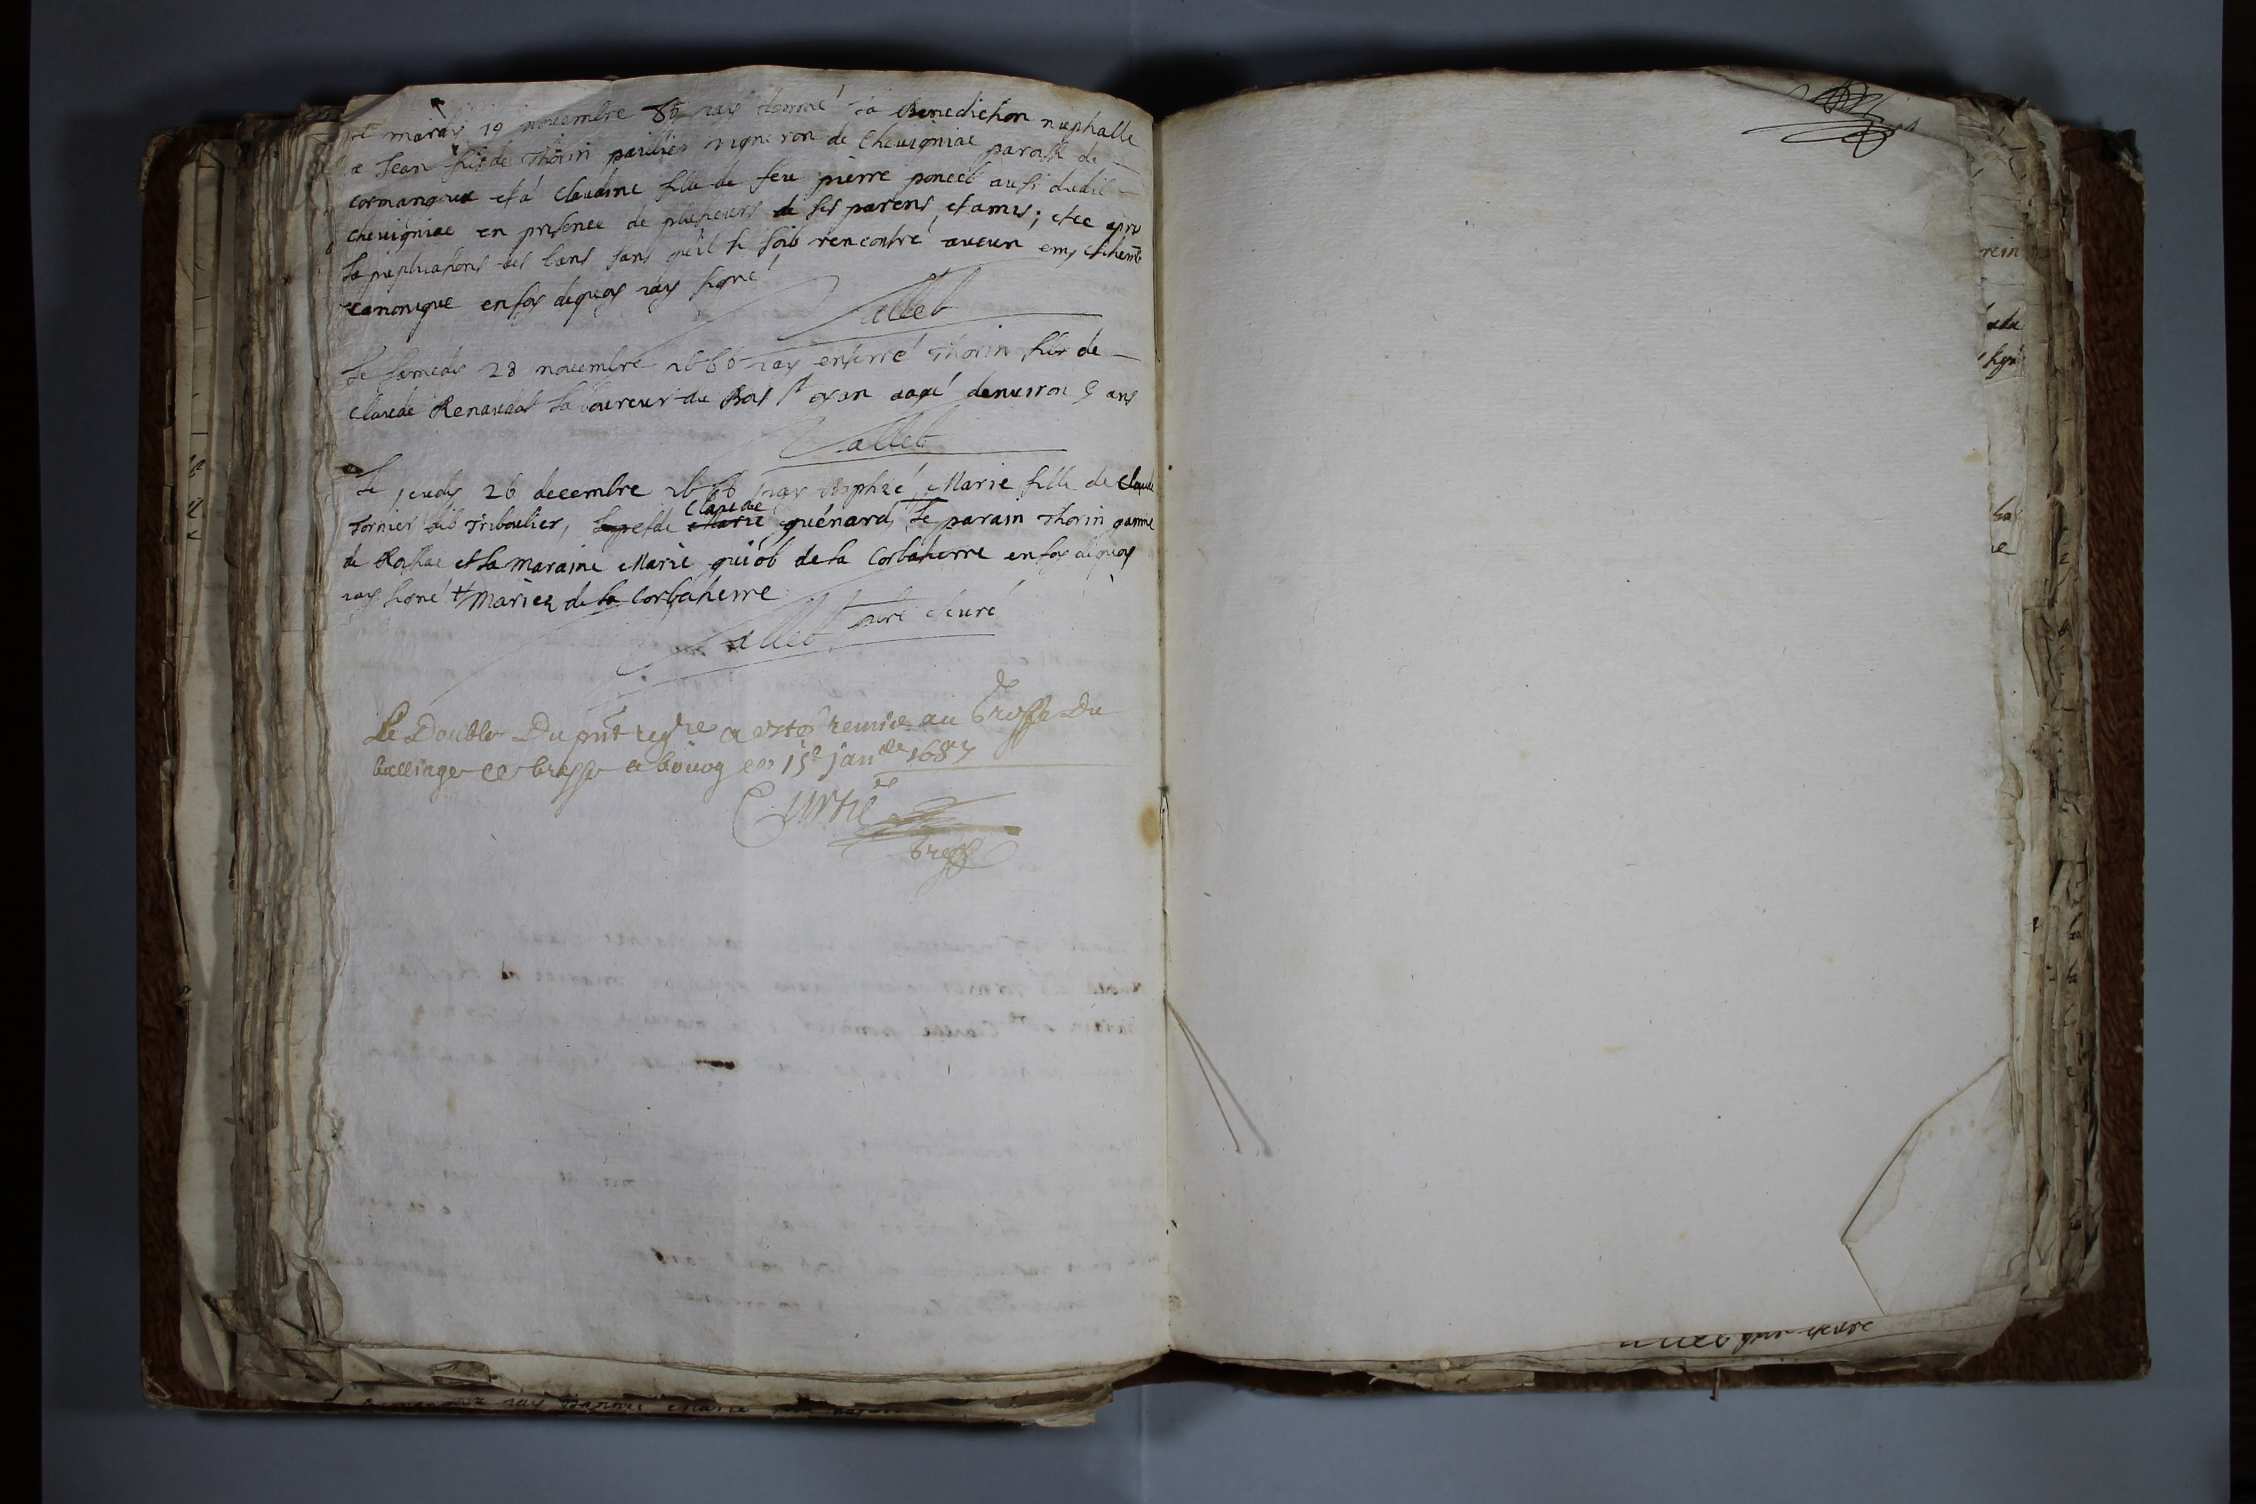 mardy 19 novembre 86 iay donné la Benediction nuptialle
a Jean fils de Thorin paillier vigneron de Cheuigniae paroisse de
cormangoux et a Claudine fille de feu pierre poncet aussi dudit
cheuigniae en presence de plusieurs de ses parens, et amis; et ce apres
la publications des bans sans qu'il se soit rencontré aucun empechemt
canonique en foy dequoy iay signé
Vallet
Le samedy 28 novembre 1686 iay enterré Thorin fils de
claude Renaudat laboureur du Bois aagé denuiron 5 ans
Vallet
Le jeudy 26 decembre 1686 iay Baptizé Marie fille de claude
Tornier dit Triboulier, et de Claudie marie guénard, Le parain Thorin
de et la maraine Marie guiot de la Corbatierre en foy dequoy
iay signé Marie de la Corbatierre
Vallet curé
Le Double Du pnt regre a esté remis au Greffe Du
balliage de bresse a bourg le 15e janvier 1687
Curtil
Greff